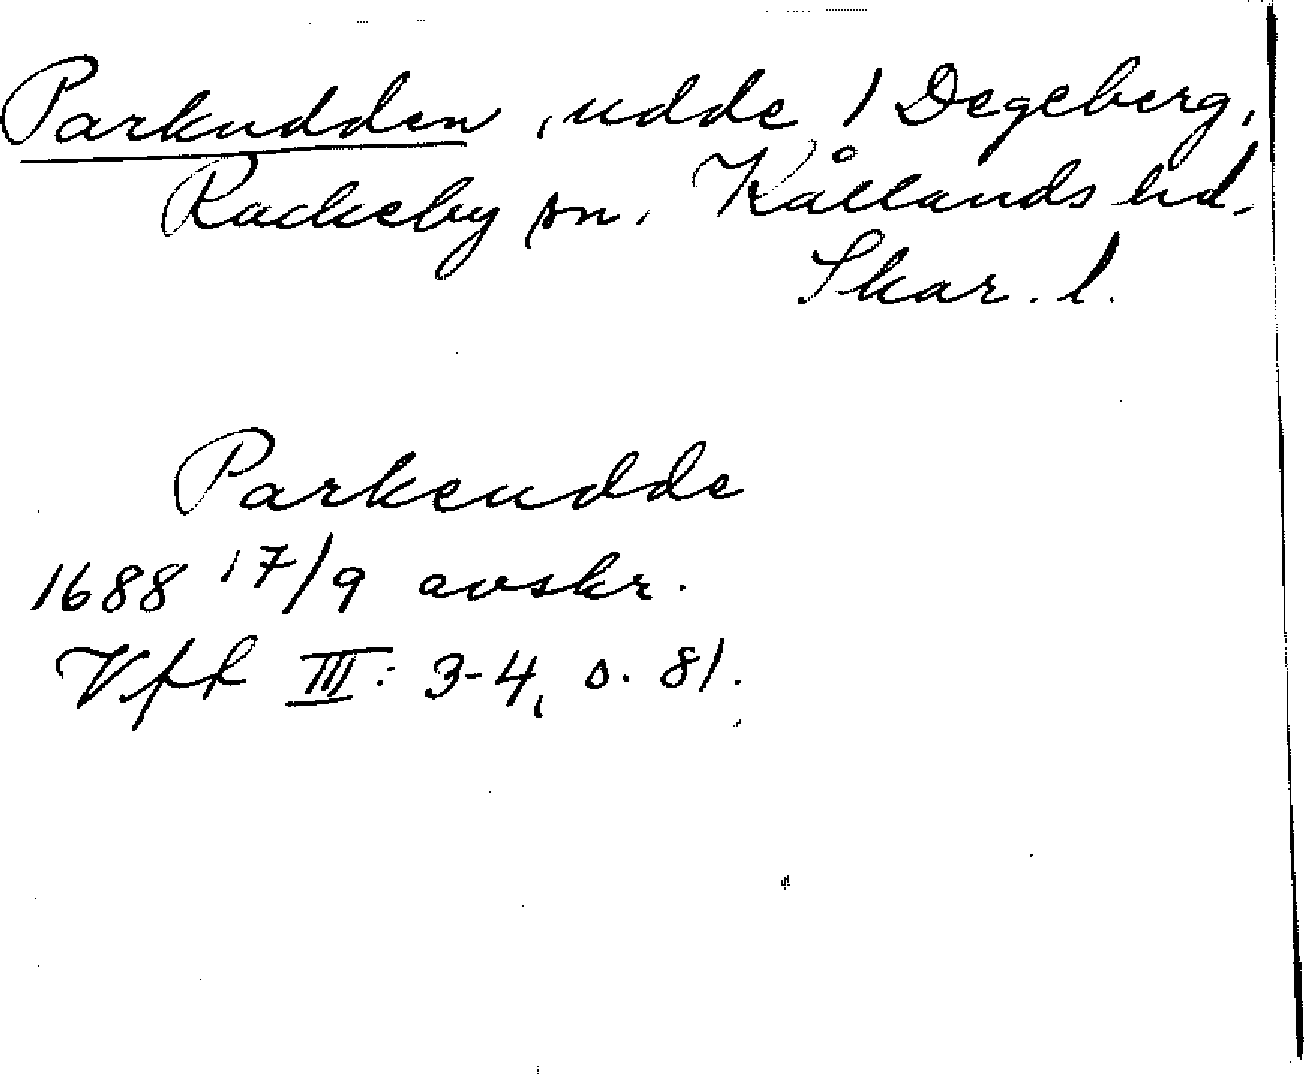 Parkudden, udde / Degeberg,
Rackeby sn. Kållands hd.
Skar. l.
Parkeudde
1688 17/9 avskr.
Vfk III: 3-4, s. 81.